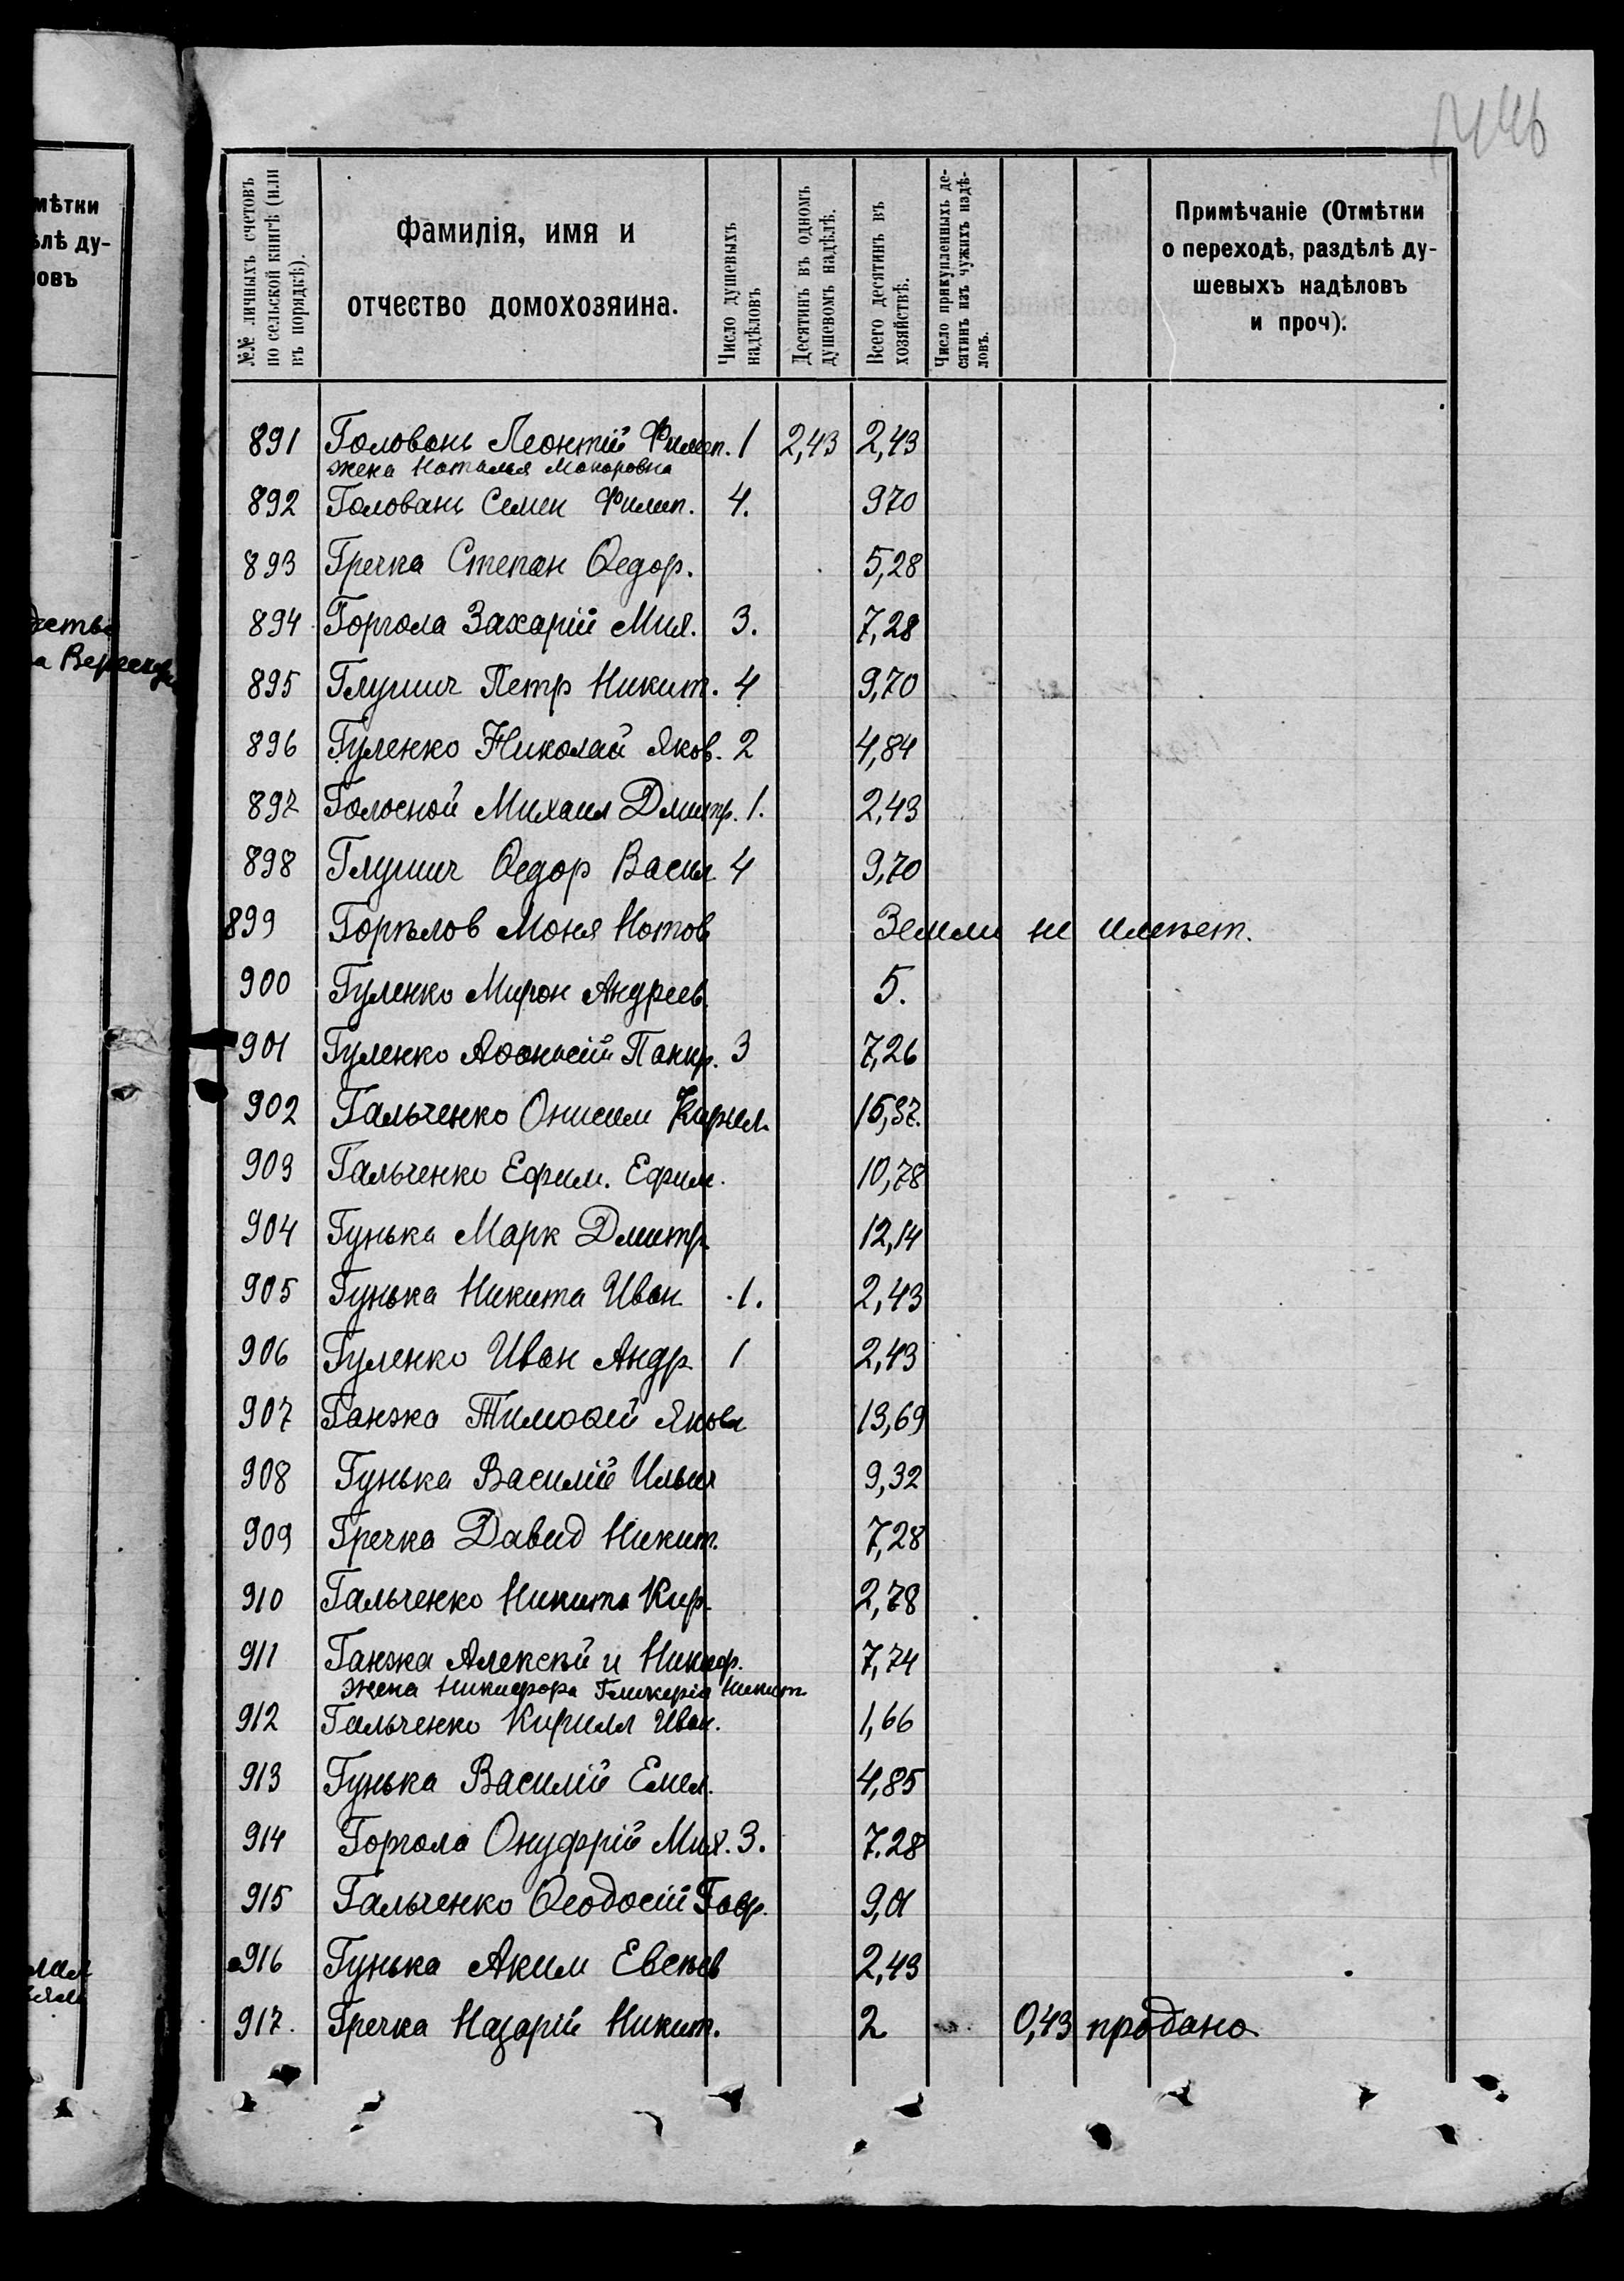 мѣтки
ѣлѣ ду-
ловъ
№№ личныхъ счетовъ по сельской книгѣ (или въ порядкѣ).
Фамилія, имя и отчество домохозяина.
Число душевыхъ надѣловъ
Десятинъ въ одномъ душевомъ надѣлѣ.
Всего десятинъ въ хозяйствѣ.
Число прикупленныхъ десятинъ изъ чужихъ надѣловъ.
Примѣчаніе (Отмѣтки
о переходѣ, раздѣлѣ ду-
шевыхъ надѣловъ
и проч).
891 Головань Леонтій Филип. 1 2,43 2,43
жена Наталья Макаровна
892 Головань Семен Филип. 4. 970
893 Гречка Степан Ѳедор. 5,28
894 Горгола Захарій Мих. 3. 7,28
895 Глушич Петр Никит. 4 9,70
896 Гуленко Николай Яков. 2 4,84
897 Голосной Михаил Дмитр. 1. 2,43
898 Глушич Ѳедор Васил 4 9,70
899 Горѣлов Моня Нотов Земли не имѣет.
900 Гуленко Мирон Андреев. 5.
901 Гуленко Аѳонасій Панкр. 3 7,26
902 Гальченко Онисим Кирил. 15,37.
903 Гальченко Ефим. Ефим. 10,78
904 Гунька Марк Дмитр. 12,14
905 Гунька Никита Иван. 1. 2,43
906 Гуленко Иван Андр. 1 2,43
907 Ганжа Тимоѳей Яковл 13,69
908 Гунька Василій Ильич 9,32
909 Гречка Давид Никит. 7,28
910 Гальченко Никита Кир. 2,78
911 Ганжа Алексѣй и Никиф. 7,74
жена Никифора Гликерія Никит.
912 Гальченко Кирилл Иван. 1,66
913 Гунька Василій Емел. 4,85
914 Горгола Онуфрій Мих. 3. 7.28
915 Гальченко Ѳеодосій Гавр. 9,01
916 Гунька Аким Евсѣев 2,43
917. Гречка Назарій Никит. 2 0,43 продано